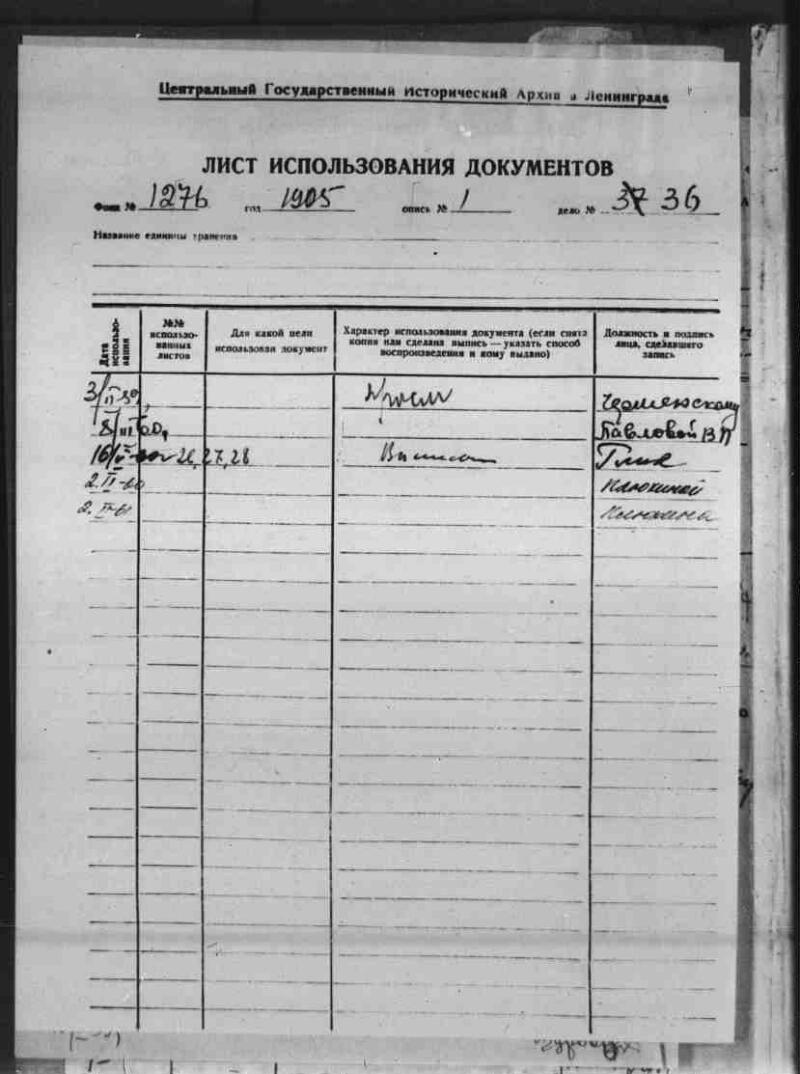 Центральный Государственный Исторический Архив в Ленинграде
ЛИСТ ИСПОЛЬЗОВАНИЯ ДОКУМЕНТОВ
Фонд № 1276 год 1905 опись № 1 дело № 36
Название единицы хранения
Дата использования
№№ использованных листов
Для какой цели использован документ
Характер использования документа (если снята копия или сделана выпись — указать способ воспроизведения и кому выдано)
Должность и подпись лица, сделавшего запись
3/II 59,
8/III 60, Павловой ВП
16/V 26, 27, 28
2.II-60
2.II-61